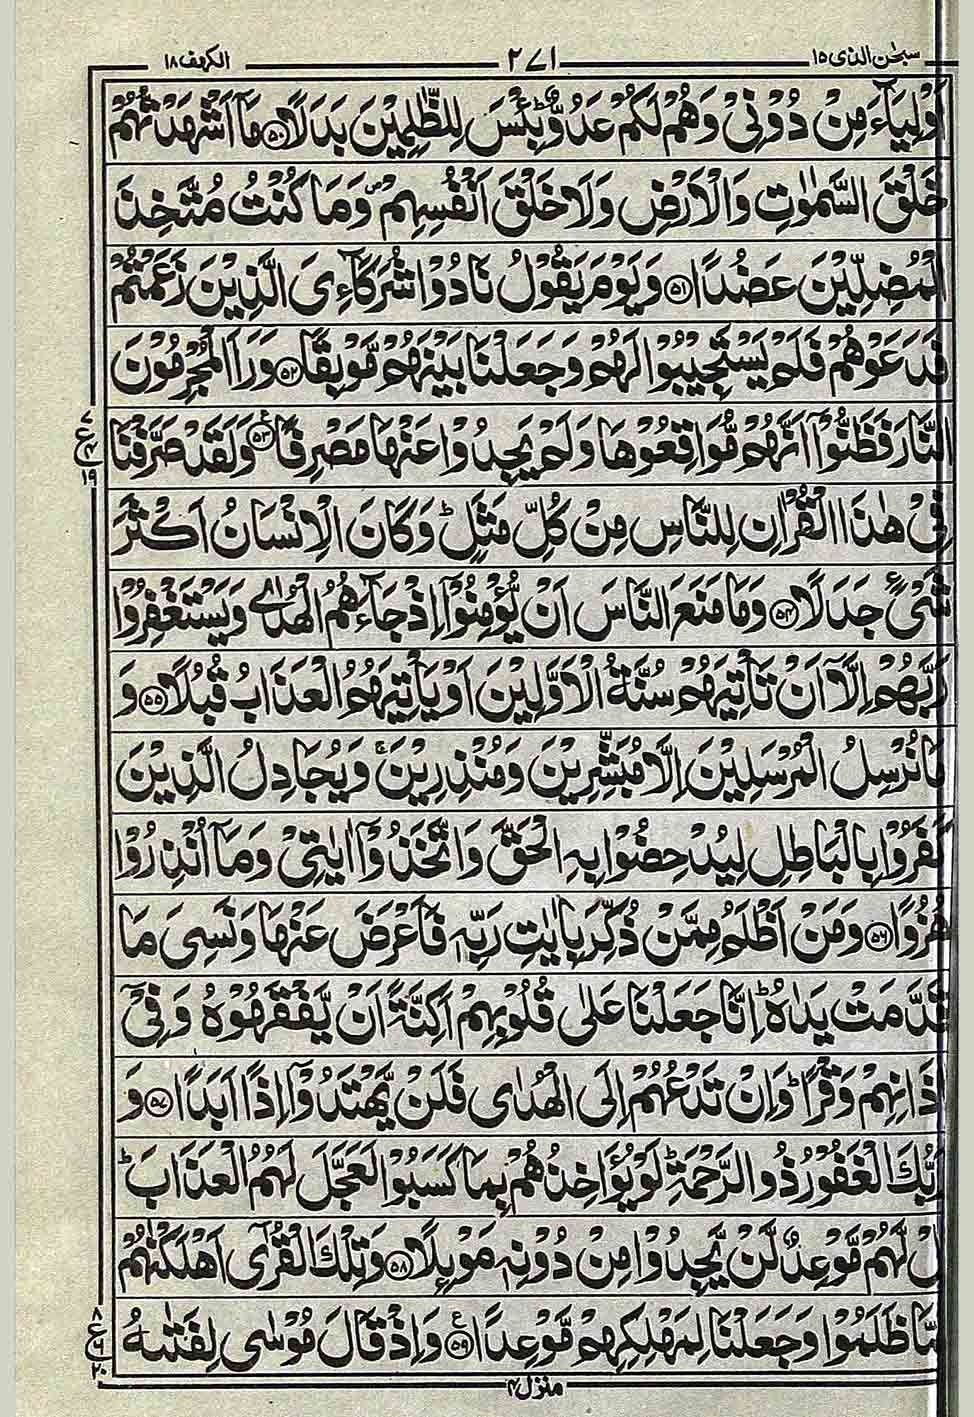 سبحٰن الذی ١٥ ٢٧١ الكهف ١٨
اَوْلِيَآءَ مِنْ دُوْنِیْ وَهُمْ لَكُمْ عَدُوٌّ ؕ بِئْسَ لِلظّٰلِمِيْنَ بَدَلًا ﴿٥٠﴾ مَاۤ اَشْهَدْتُّهُمْ
خَلْقَ السَّمٰوٰتِ وَالْاَرْضِ وَلَا خَلْقَ اَنْفُسِهِمْ ۪ وَمَا كُنْتُ مُتَّخِذَ
الْمُضِلِّيْنَ عَضُدًا ﴿٥١﴾ وَيَوْمَ يَقُوْلُ نَادُوْا شُرَكَآءِیَ الَّذِيْنَ زَعَمْتُمْ
فَدَعَوْهُمْ فَلَمْ يَسْتَجِيْبُوْا لَهُمْ وَجَعَلْنَا بَيْنَهُمْ مَّوْبِقًا ﴿٥٢﴾ وَرَاَ الْمُجْرِمُوْنَ
النَّارَ فَظَنُّوْۤا اَنَّهُمْ مُّوَاقِعُوْهَا وَلَمْ يَجِدُوْا عَنْهَا مَصْرِفًا ﴿٥٣﴾ وَلَقَدْ صَرَّفْنَا
٧ ع ٤ ١٩
فِیْ هٰذَا الْقُرْاٰنِ لِلنَّاسِ مِنْ كُلِّ مَثَلٍ ؕ وَكَانَ الْاِنْسَانُ اَكْثَرَ
شَیْءٍ جَدَلًا ﴿٥٤﴾ وَمَا مَنَعَ النَّاسَ اَنْ يُّؤْمِنُوْۤا اِذْ جَآءَهُمُ الْهُدٰی وَيَسْتَغْفِرُوْا
رَبَّهُمْ اِلَّاۤ اَنْ تَاْتِيَهُمْ سُنَّةُ الْاَوَّلِيْنَ اَوْ يَاْتِيَهُمُ الْعَذَابُ قُبُلًا ﴿٥٥﴾ وَ
مَا نُرْسِلُ الْمُرْسَلِيْنَ اِلَّا مُبَشِّرِيْنَ وَمُنْذِرِيْنَ ۚ وَيُجَادِلُ الَّذِيْنَ
كَفَرُوْا بِالْبَاطِلِ لِيُدْحِضُوْا بِهِ الْحَقَّ وَاتَّخَذُوْۤا اٰيٰتِیْ وَمَاۤ اُنْذِرُوْا
هُزُوًا ﴿٥٦﴾ وَمَنْ اَظْلَمُ مِمَّنْ ذُكِّرَ بِاٰيٰتِ رَبِّهٖ فَاَعْرَضَ عَنْهَا وَنَسِیَ مَا
قَدَّمَتْ يَدٰهُ ؕ اِنَّا جَعَلْنَا عَلٰی قُلُوْبِهِمْ اَكِنَّةً اَنْ يَّفْقَهُوْهُ وَفِیْۤ
اٰذَانِهِمْ وَقْرًا ؕ وَاِنْ تَدْعُهُمْ اِلَی الْهُدٰی فَلَنْ يَّهْتَدُوْۤا اِذًا اَبَدًا ﴿٥٧﴾ وَ
رَبُّكَ الْغَفُوْرُ ذُو الرَّحْمَةِ ؕ لَوْ يُؤَاخِذُهُمْ بِمَا كَسَبُوْا لَعَجَّلَ لَهُمُ الْعَذَابَ ؕ
بَلْ لَّهُمْ مَّوْعِدٌ لَّنْ يَّجِدُوْا مِنْ دُوْنِهٖ مَوْئِلًا ﴿٥٨﴾ وَتِلْكَ الْقُرٰۤی اَهْلَكْنٰهُمْ
لَمَّا ظَلَمُوْا وَجَعَلْنَا لِمَهْلِكِهِمْ مَّوْعِدًا ﴿٥٩﴾ وَاِذْ قَالَ مُوْسٰی لِفَتٰىهُ
٨ ع ٦ ٢٠
منزل ٤